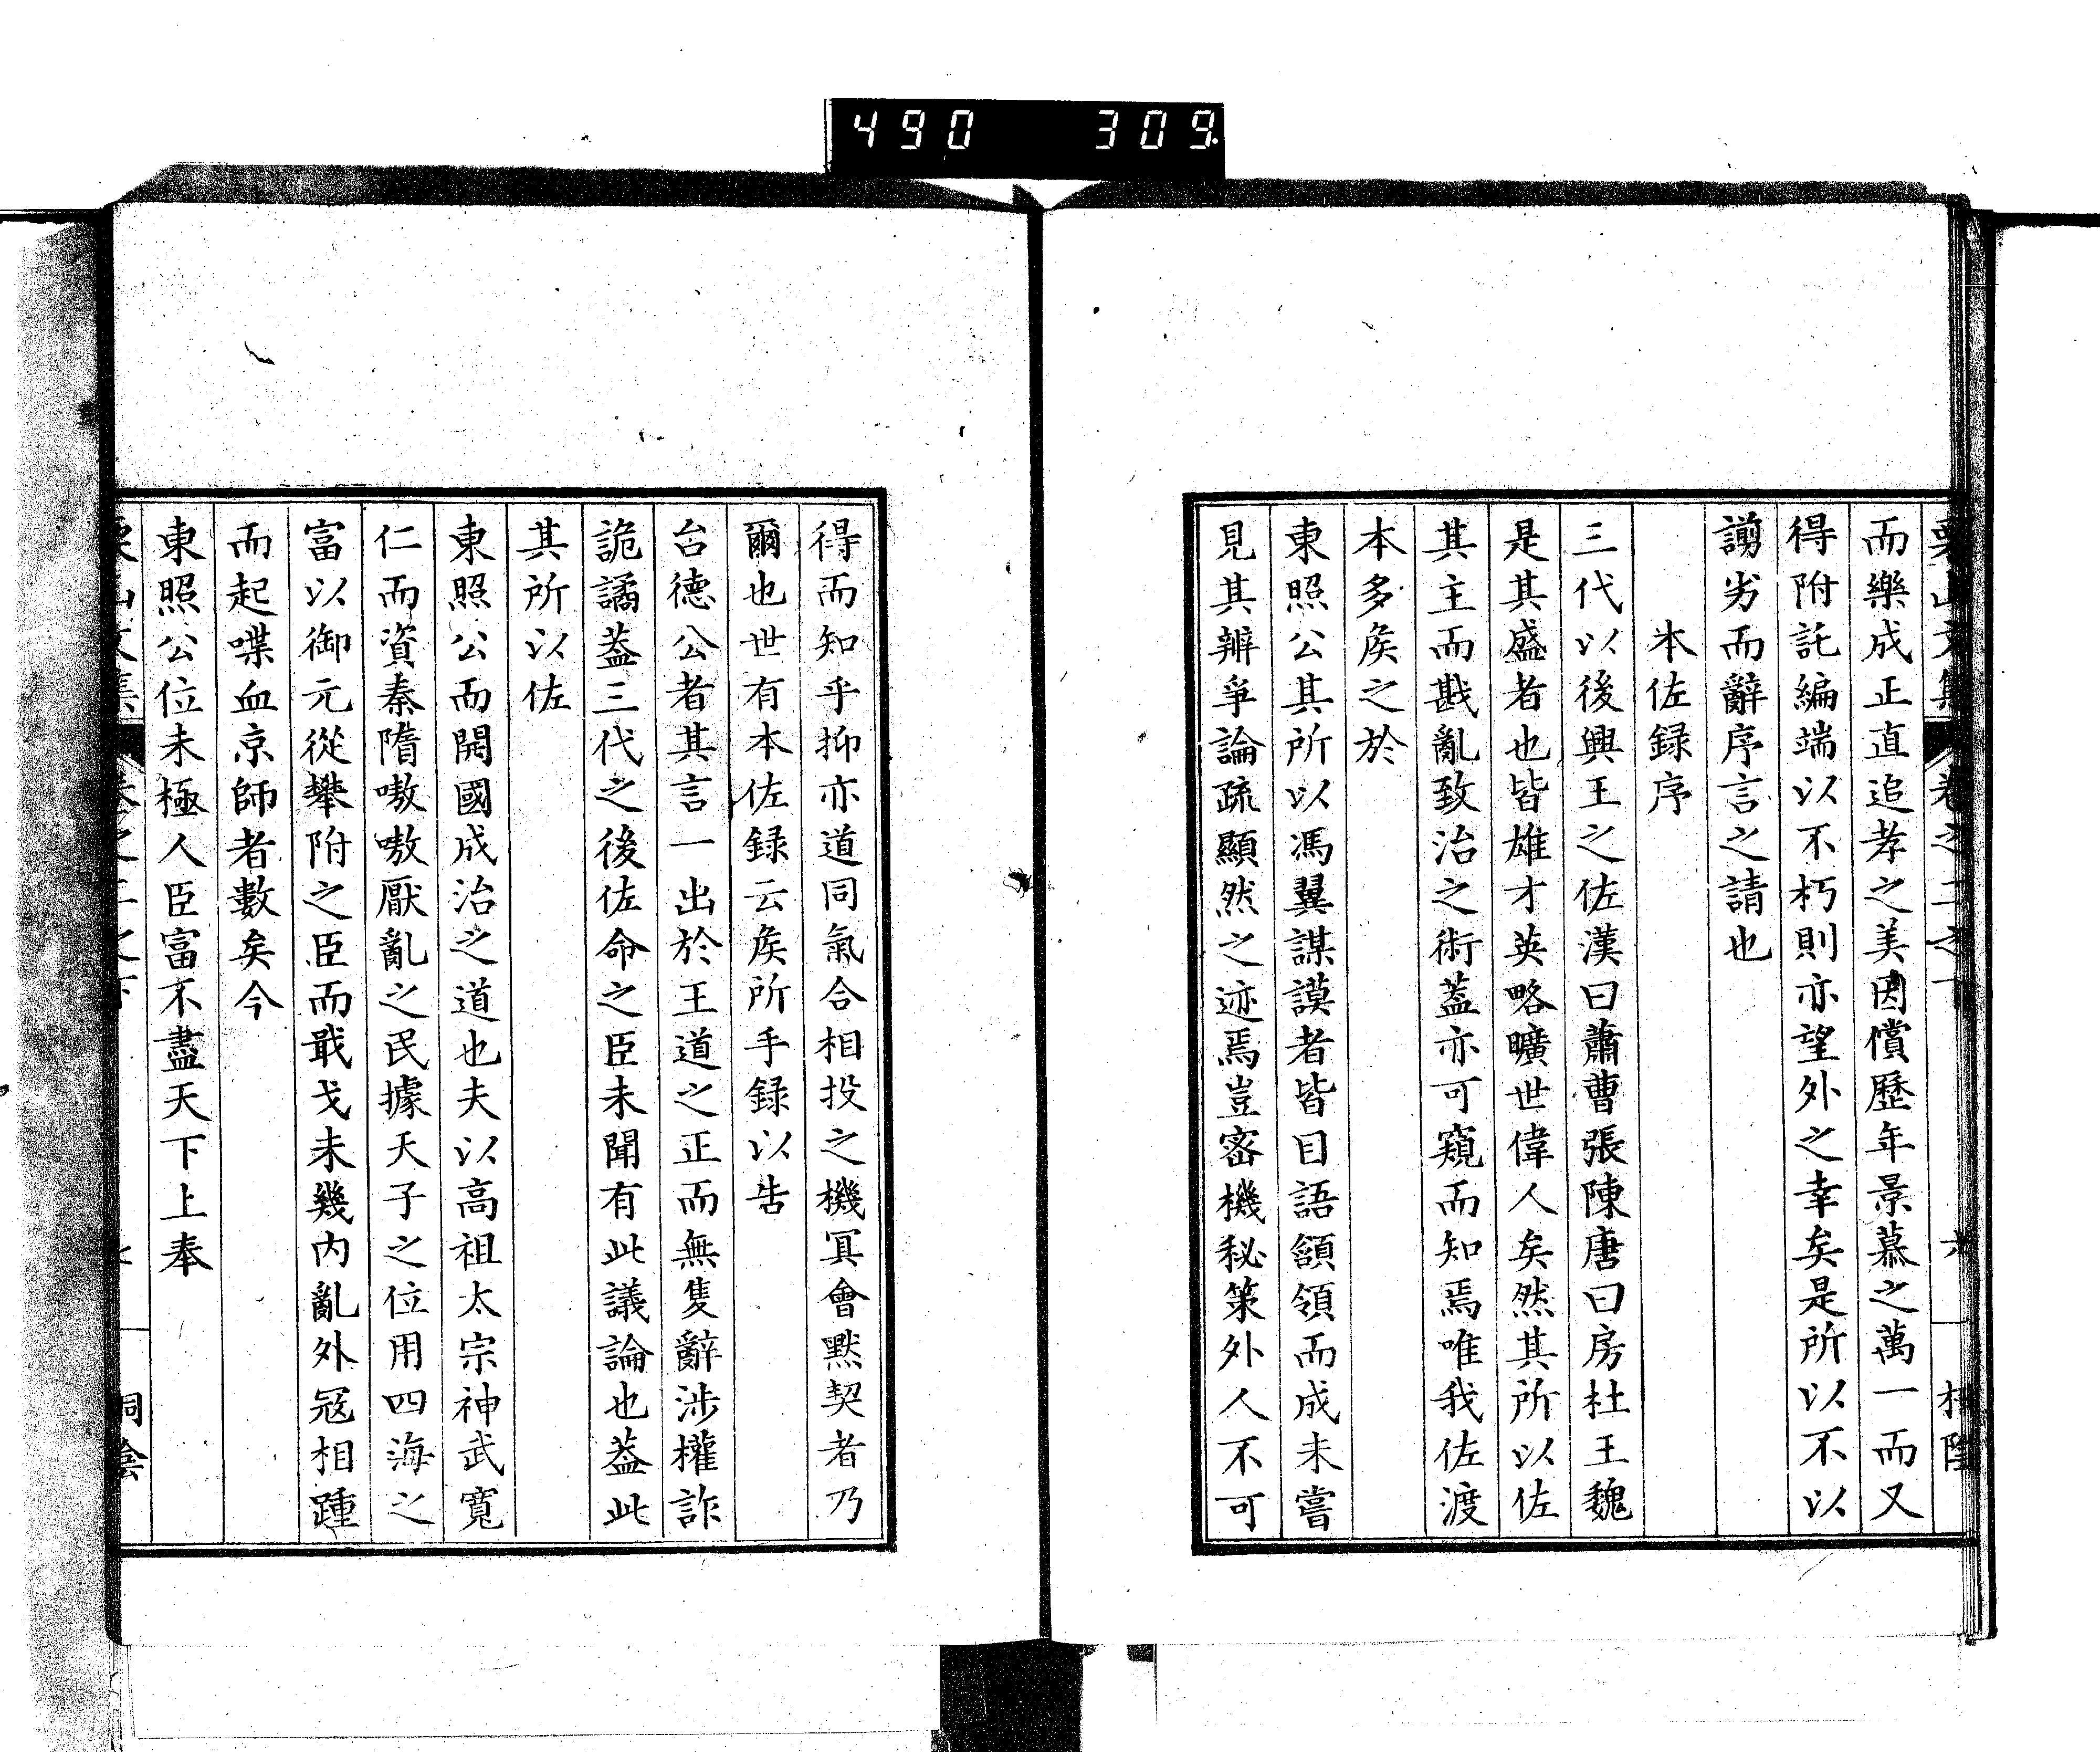 490 309
栗山文集 卷之二之下 六 桐陰
而樂成正直追孝之美因償歷年景慕之萬一而又
得附託編端以不朽則亦望外之幸矣是所以不以
謭劣而辭序言之請也
本佐録序
三代以後興王之佐漢曰蕭曹張陳唐曰房杜王魏
是其盛者也皆雄才英略曠世偉人矣然其所以佐
其主而戡亂致治之術蓋亦可窺而知焉唯我佐渡
本多矦之於
東照公其所以馮翼謀謨者皆目語頷領而成未嘗
見其辨爭論疏顯然之迹焉豈密機秘策外人不可
得而知乎抑亦道同氣合相投之機冥會默契者乃
爾也世有本佐録云矦所手録以告
台德公者其言一出於王道之正而無隻辭涉權詐
詭譎葢三代之後佐命之臣未聞有此議論也葢此
其所以佐
東照公而開國成治之道也夫以高祖太宗神武寬
仁而資秦隋嗷嗷厭亂之民據天子之位用四海之
富以御元從攀附之臣而戢戈未幾内亂外冦相踵
而起喋血京師者數矣今
東照公位未極人臣富不盡天下上奉
栗山文集 卷之二之下 桐陰